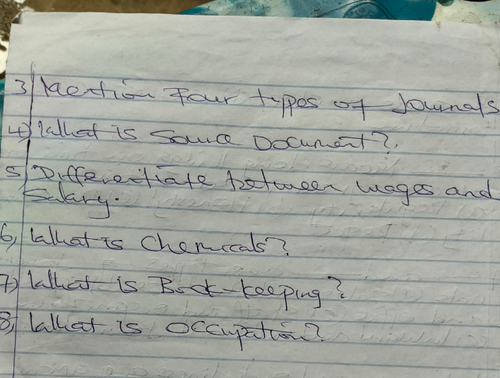 3) Mention Four types of Journals
4) What is Source Document?
5) Differentiate between wages and
Salary.
6) What is Chemicals?
7) What is Book-keeping?
8) What is Occupation?